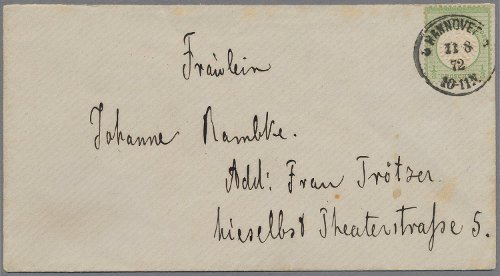 HANNOVER
11 8
72
10-11N.
Fräulein
Johanne Rambke.
Add: Frau Trötzer.
hieselbst Theaterstraße 5.